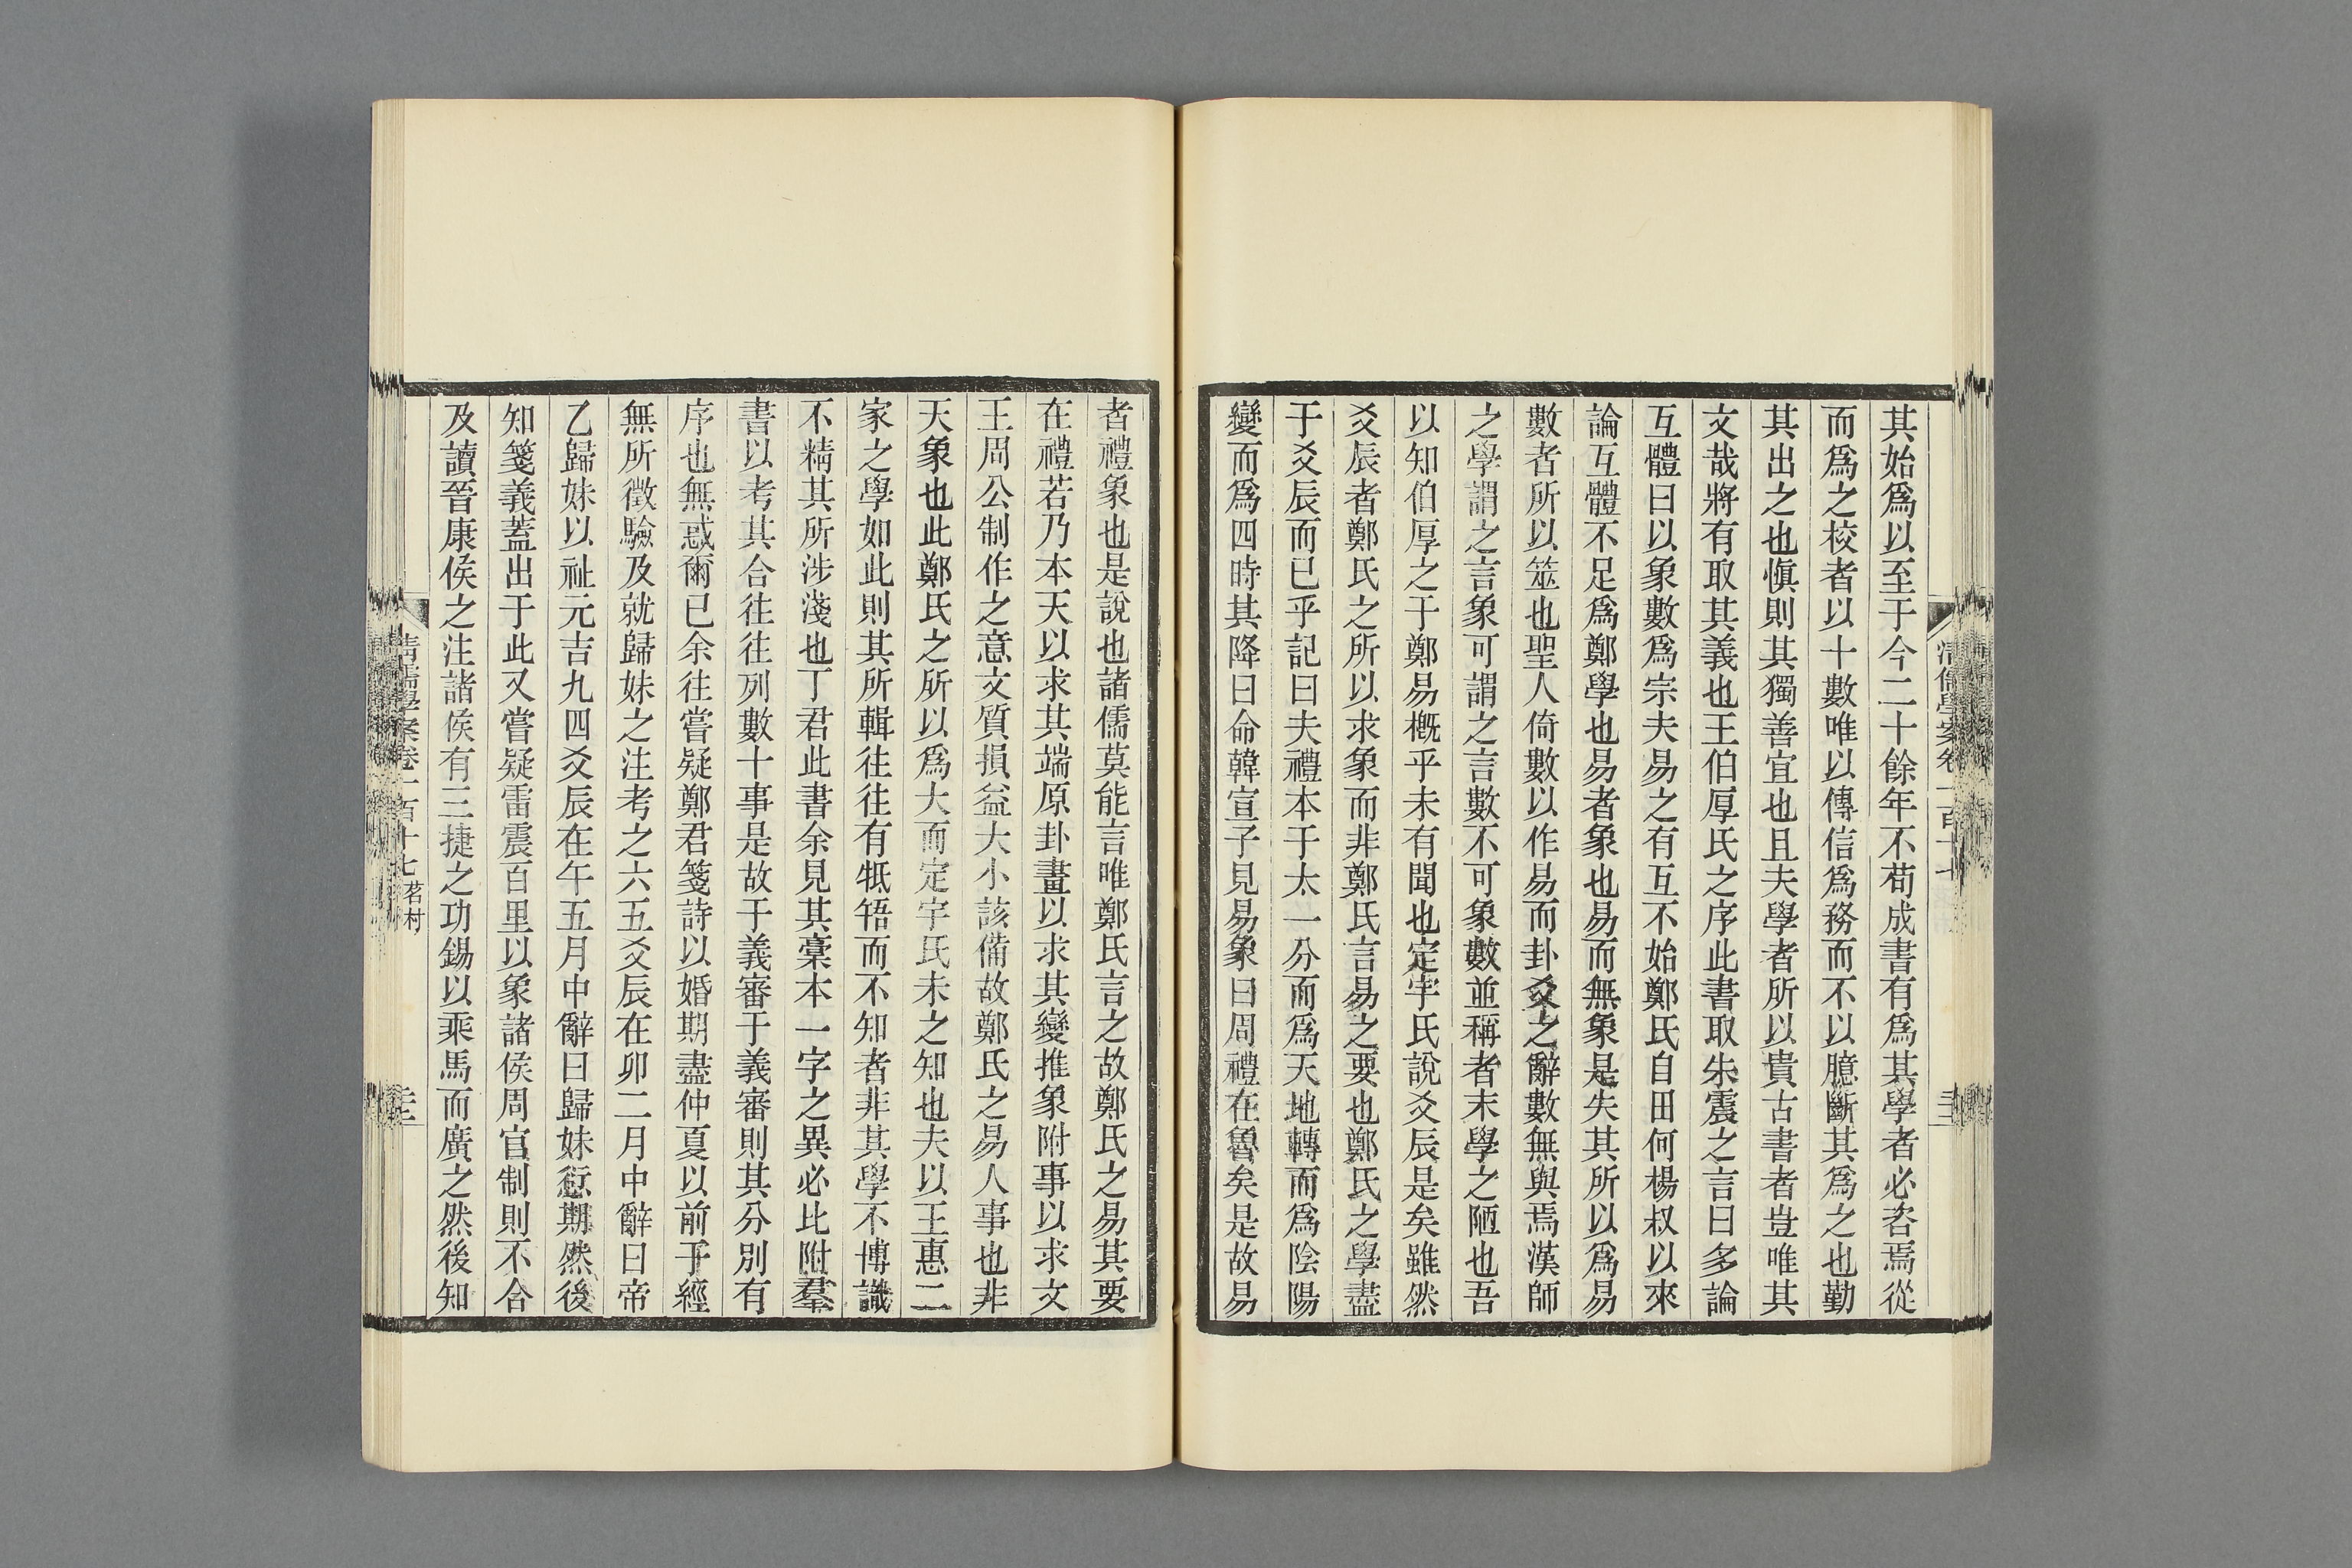 其始爲以至于今二十餘年不苟成書有爲其學者必咨焉從
而爲之校者以十數唯以傳信爲務而不以臆斷其爲之也勤
其出之也愼則其獨善宜也且夫學者所以貴古書者豈唯其
文哉將有取其義也王伯厚氏之序此書取朱震之言曰多論
互體曰以象數爲宗夫易之有互不始鄭氏自田何楊叔以來
論互體不足爲鄭學也易者象也易而無象是失其所以爲易
數者所以筮也聖人倚數以作易而卦爻之辭數無與焉漢師
之學謂之言象可謂之言數不可象數並稱者末學之陋也吾
以知伯厚之于鄭易槪乎未有聞也定宇氏說爻辰是矣雖然
爻辰者鄭氏之所以求象而非鄭氏言易之要也鄭氏之學盡
于爻辰而已乎記曰夫禮本于太一分而爲天地轉而爲陰陽
變而爲四時其降曰命韓宣子見易象曰周禮在魯矣是故易
者禮象也是說也諸儒莫能言唯鄭氏言之故鄭氏之易其要
在禮若乃本天以求其端原卦畫以求其變推象附事以求文
王周公制作之意文質損益大小該備故鄭氏之易人事也非
天象也此鄭氏之所以爲大而定宇氏未之知也夫以王惠二
家之學如此則其所輯往往有牴牾而不知者非其學不博識
不精其所涉淺也丁君此書余見其稾本一字之異必比附羣
書以考其合往往列數十事是故于義審于義審則其分別有
序也無惑爾已余往嘗疑鄭君箋詩以婚期盡仲夏以前于經
無所徵驗及就歸妹之注考之六五爻辰在卯二月中辭曰帝
乙歸妹以祉元吉九四爻辰在午五月中辭曰歸妹愆期然後
知箋義蓋出于此又嘗疑雷震百里以象諸侯周官制則不合
及讀晉康侯之注諸侯有三捷之功錫以乘馬而廣之然後知
清儒學案卷一百十七 茗村